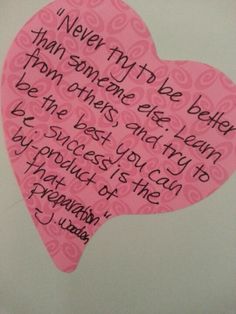 "Never try to be better
than someone else. Learn
from others, and try to
be the best you can
be. Success is the
by-product of
that
preparation."
-J. Wooden